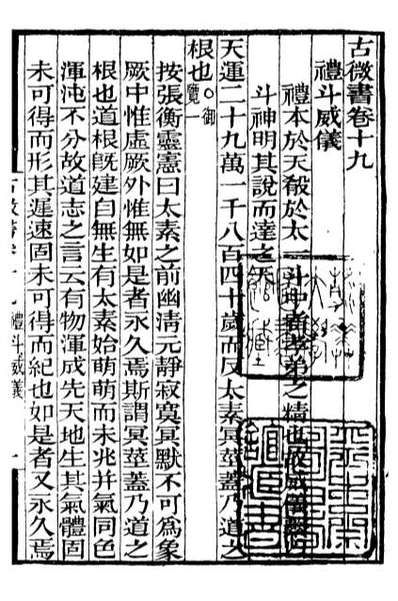 古微書卷十九
禮斗威儀
禮本於天殽於太 斗中者孝弟之精也故威儀
斗神明其說而達之天
天運二十九萬一千八百四十歲而反太素冥莖蓋乃道之
根也○御覽一
按張衡靈憲曰太素之前幽淸元靜寂寞冥默不可爲象
厥中惟虛厥外惟無如是者永久焉斯謂冥莖蓋乃道之
根也道根旣建自無生有太素始萌萌而未兆并氣同色
渾沌不分故道志之言云有物渾成先天地生其氣體固
未可得而形其遲速固未可得而紀也如是者又永久焉
禮斗威儀 一